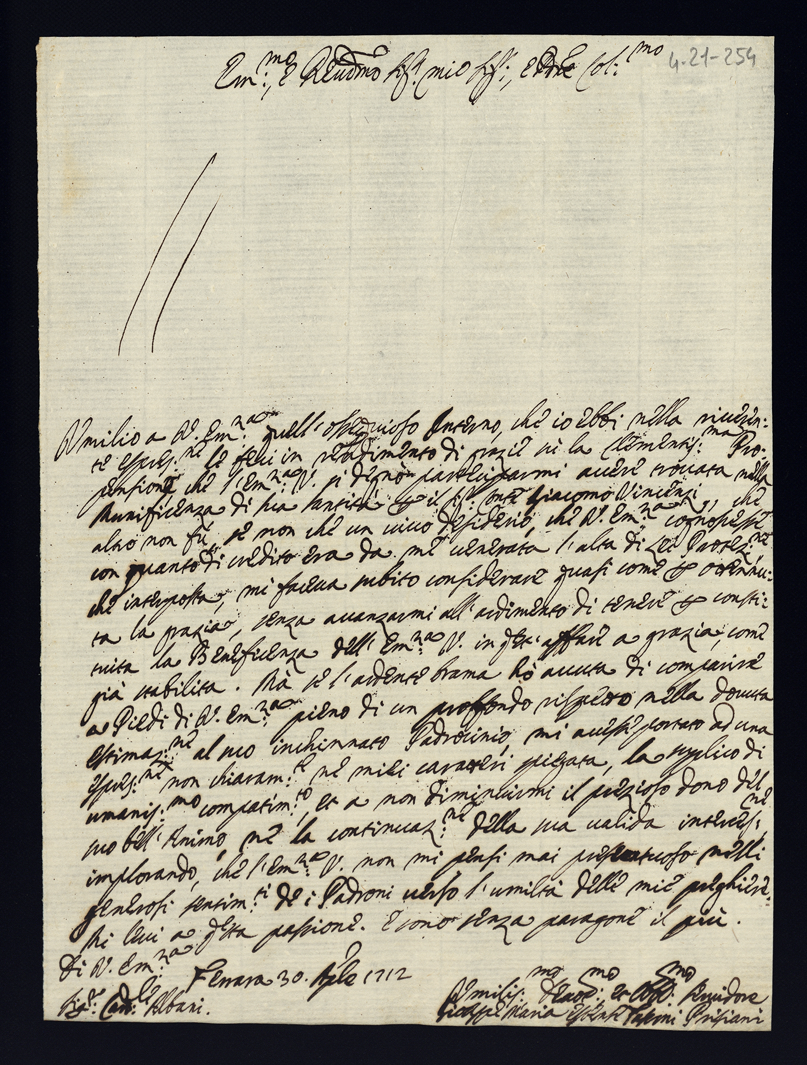 4-21-254
Em:mo, e Reudmo Sigr. mio Sigr:, e Pne Col:mo
Vmilio a V. Em:za quell'ossequioso Interno, che io ebbi nella riueren:
te espres:ne le feci in rendimento di grazie sù la Clementis:ma Pro:
pensione che l'Em:za V. si degnò parteciparmi auere trouata nella
Munificenza di sua Santità il Giacomo Vincenzi, che
altro non fù, se non che un viuo desiderio, che V. Em:za cognoscesse
con quanto di credito era da me uenerata l'alta di Lei Protez:ne
che interposta, mi faceua subito considerare quasi come ottenu:
ta la grazia, senza auanzarmi all'ardimento di tenere consti:
tuita la Beneficenza dell'Em:za V. in affare a grazia, come
già stabilita. Mà se l'ardente brama hò auuta di comparire
a Piedi di V. Em:za pieno di un proffondo rispetto nella douuta
estimaz:ne al suo inchinnato Padrocinio, mi auesse portato ad una
espres:ne non chiaram:te ne miei caratteri piegata, la supplico di
umanis:mo compatim:to, et a non diminuirmi il prezioso dono del
suo bell'Animo, nè la continuaz:ne della sua ualida interces:ne
implorando, che l'Em:za V. non mi pensi mai nelli
generosi sentim:ti de i Padroni uerso l'umiltà delle mie preghiere.
Mi leui a passione. E sono senza paragone il più.
Di V. Em:za
Ferrara 30. Aple 1712
Sigr: Card:le Albani.
Vmilis:mo Deuot:mo et Obl:mo Seruidore
Giuseppe Maria Estense Tassoni Prisiani